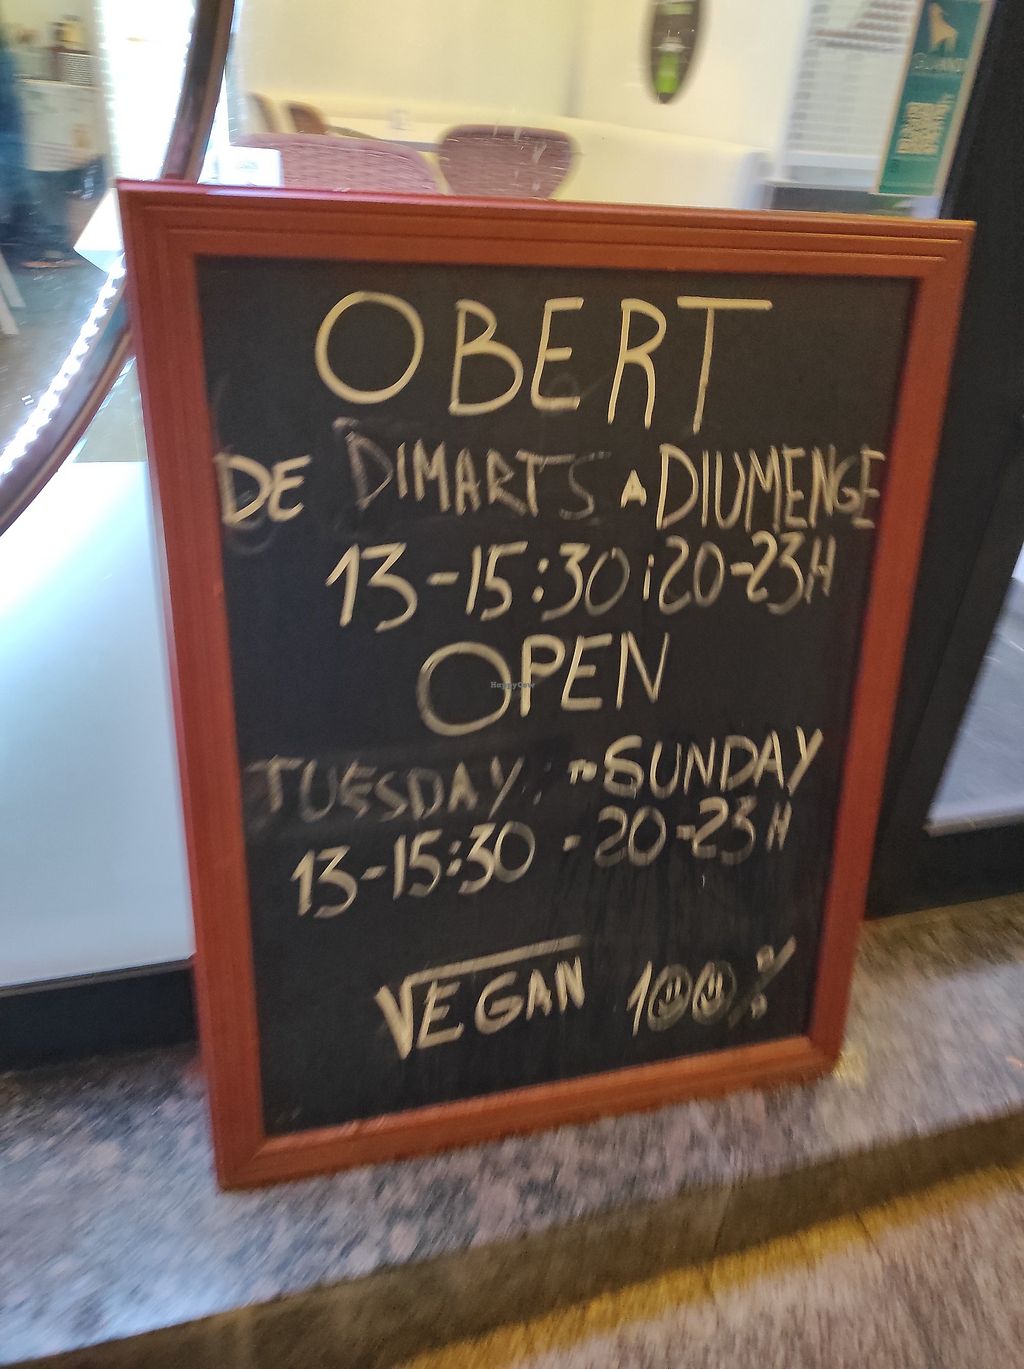 OBERT
DE DIMARTS A DIUMENGE
13-15:30 i 20-23H
OPEN
HappyCow
TUESDAY TO SUNDAY
13-15:30 - 20-23H
VEGAN 100%